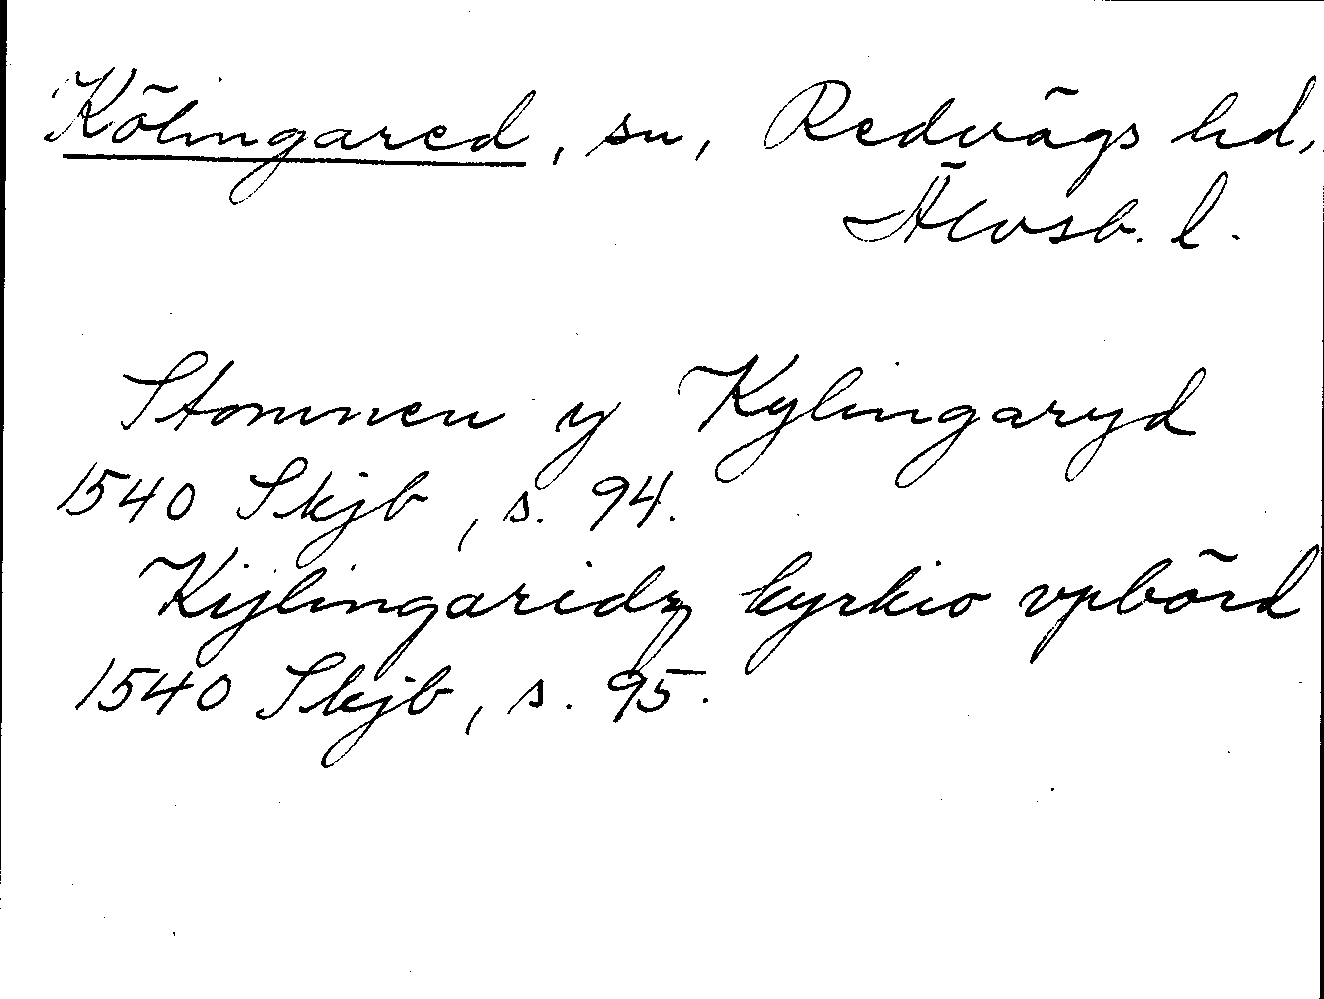 Kölingared, sn, Redvägs hd,
Älvsb. l.
Stommen y Kylingaryd
1540 Skjb, s. 94.
Kijlingaridz kyrkio vpbörd
1540 Skjb, s. 95.